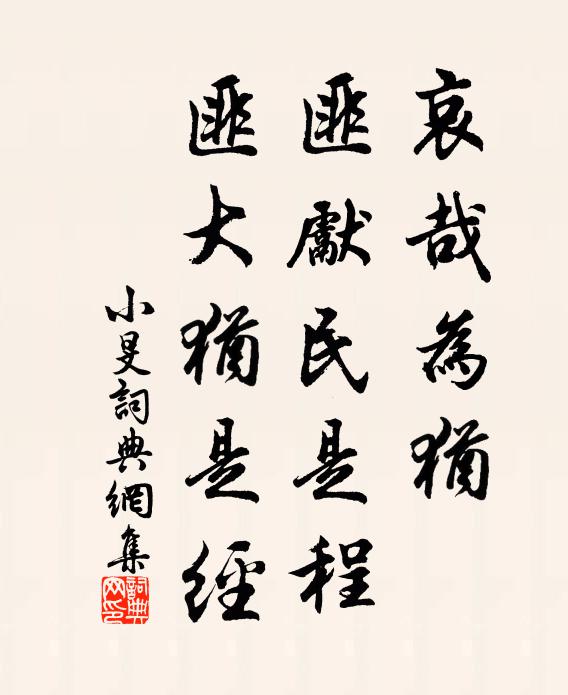 哀哉為猶
匪獻民是程
匪大猶是經
小旻詞典網集
詞典网印